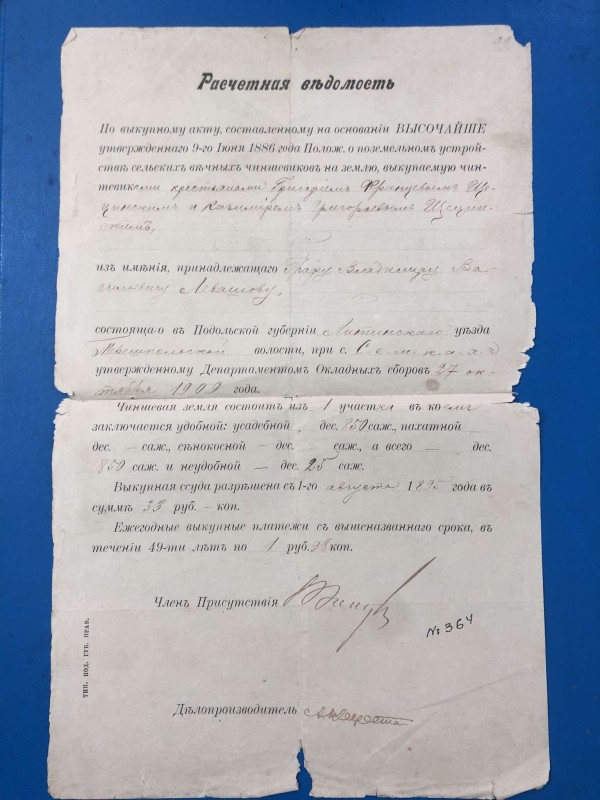 Расчетная вѣдомость
По выкупному акту, составленному на основаніи ВЫСОЧАЙШЕ
утвержденнаго 9-го Іюня 1886 года Полож. о поземельномъ устрой-
ствѣ сельскихъ вѣчныхъ чиншевиковъ на землю, выкупаемую чин-
шевиками крестьянами Григоріемъ Францевымъ Ще-
цинскимъ и Казиміромъ Григорьевымъ Щецин-
скимъ,
изъ имѣнія, принадлежащаго Графу Владиміру Ва-
сильевичу Левашову,
состояща-о въ Подольской губерніи Литинскаго уѣзда
волости, при с. Сомнахъ
утвержденному Департаментомъ Окладныхъ сборовъ 27 ок-
тября 1909 года.
Чиншевая земля состоитъ изъ 1 участка въ коемъ
заключается удобной: усадебной дес. 850 саж., пахатной —
дес. — саж., сѣнокосной — дес. — саж., а всего — дес.
850 саж. и неудобной — дес. 25 саж.
Выкупная ссуда разрѣшена съ 1-го августа 1895 года въ
суммѣ 33 руб. — коп.
Ежегодные выкупные платежи съ вышеназваннаго срока, въ
теченіи 49-ти лѣтъ по 1 руб. 98 коп.
Членъ Присутствія
№ 364
Дѣлопроизводитель
ТИП. ПОД. ГУБ. ПРАВ.